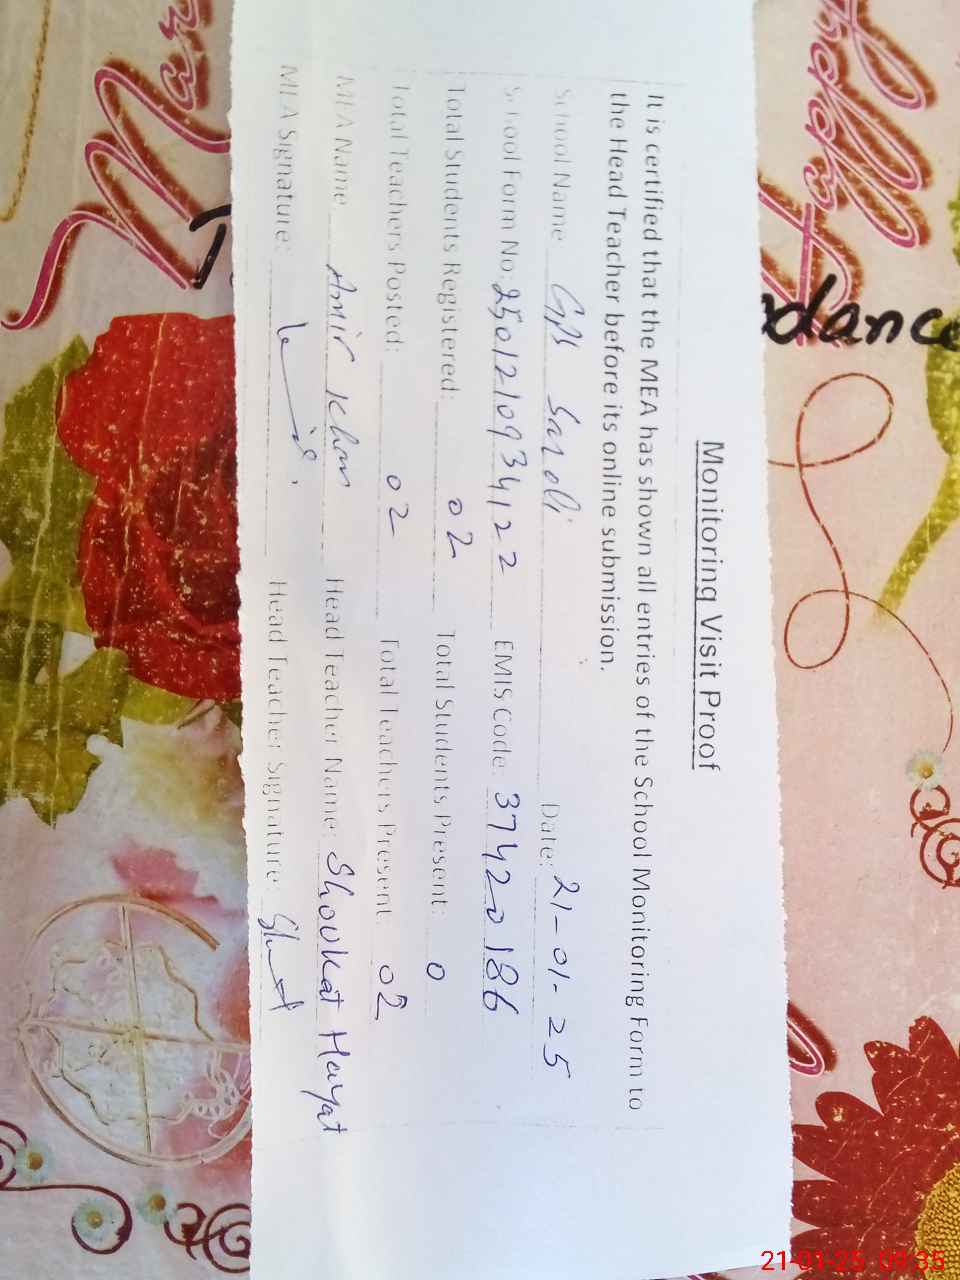 Monitoring Visit Proof
It is certified that the MEA has shown all entries of the School Monitoring Form to
the Head Teacher before its online submission.
School Name GPS Saroli Date: 21-01-25
School Form No: 2501210934122 EMIS Code: 37420186
Total Students Registered: 02 Total Students Present: 0
Total Teachers Posted: 02 Total Teachers Present 02
MEA Name Amir Khan Head Teacher Name: Shoukat Hayat
MEA Signature: Head Teacher Signature:
dance
21-01-25 09:35